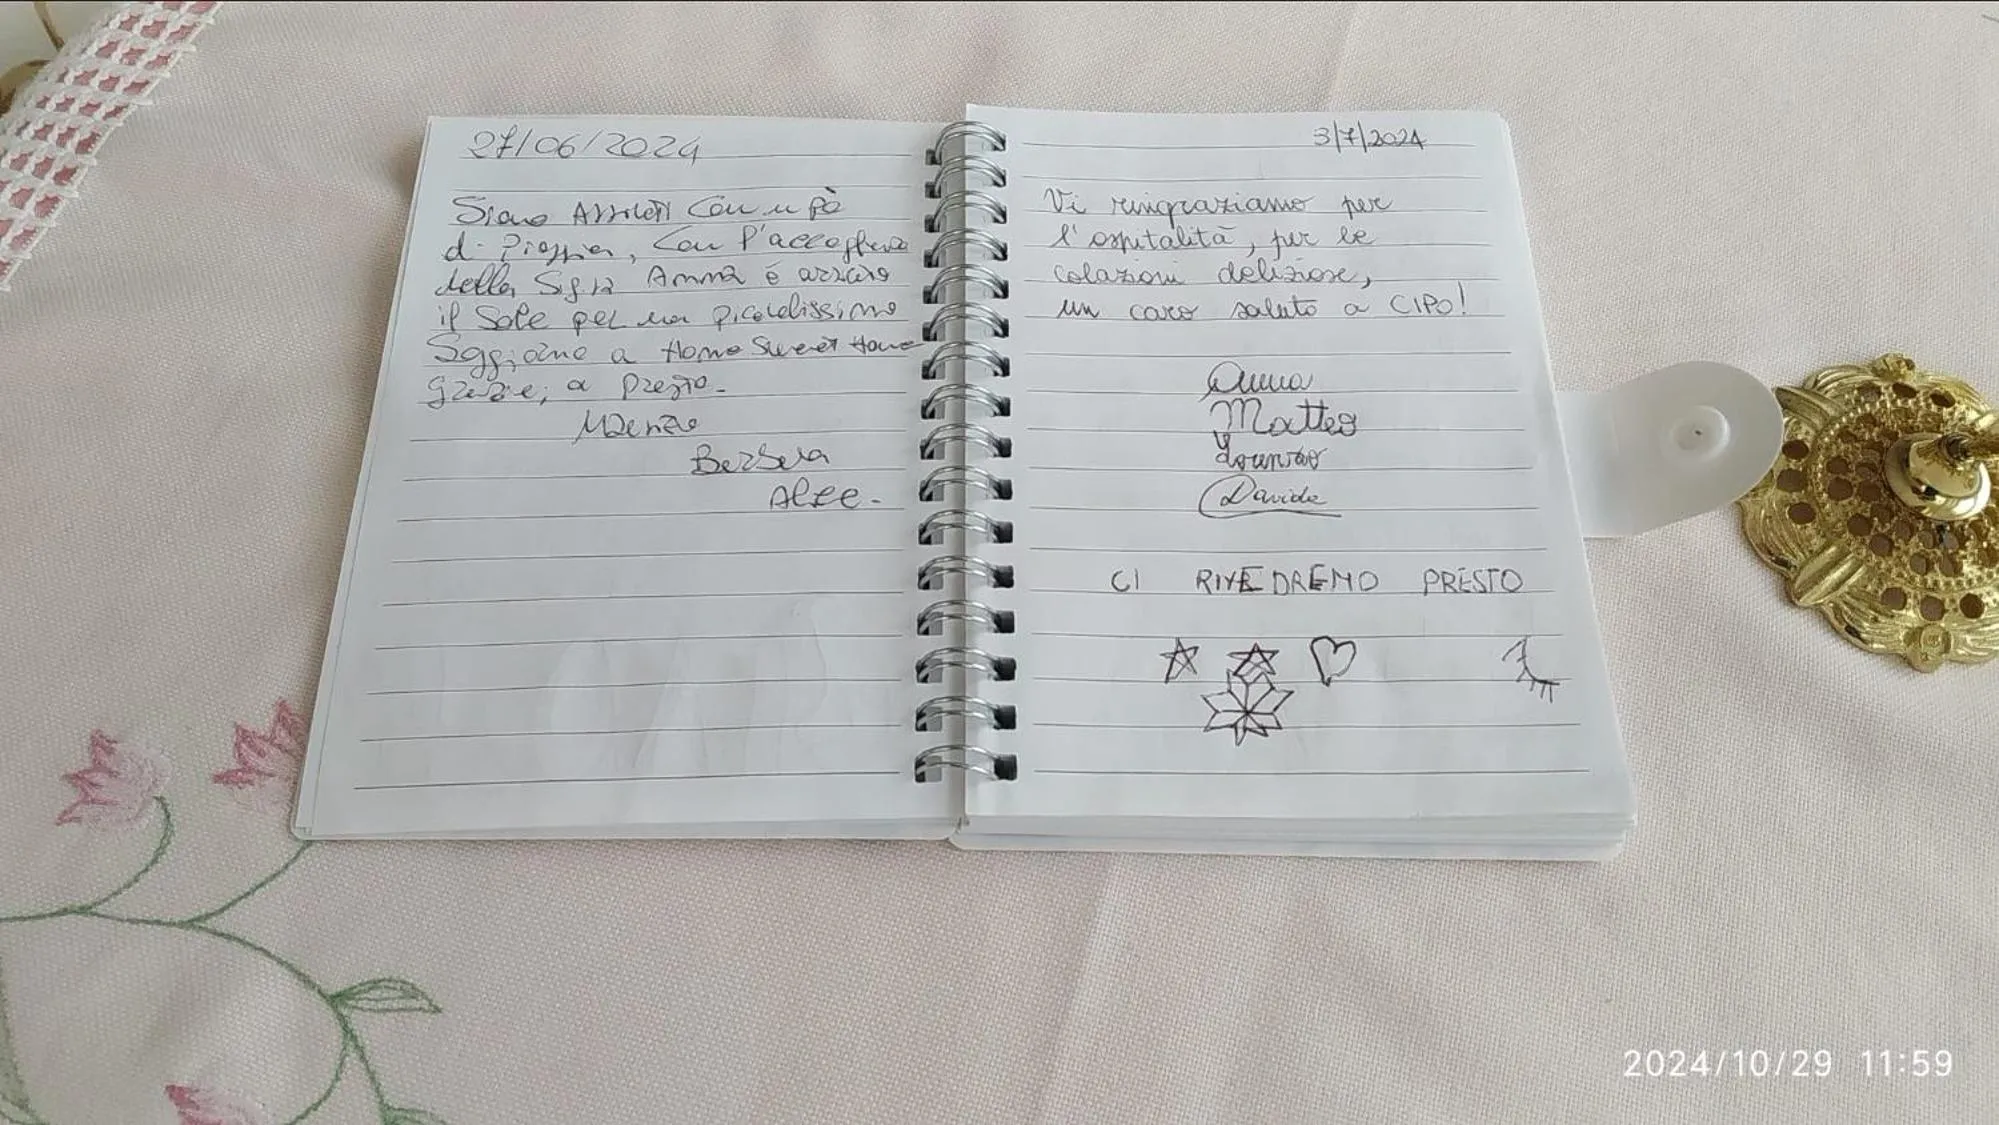 27/06/2024
Siamo Arrivati Con u pò
di Pioggia, Con l'accoglienza
della Sig.ra Anna è arrivato
il Sole per un piccolissimo
Soggiorno a Home Sweet Home
Grazie, a Presto.
Barbara
Alice.
3/7/2024
Vi ringraziamo per
l'ospitalità, per le
colazioni deliziose,
un caro saluto a CIPO!
Anna
Matteo
Lorenzo
Davide
CI RIVEDREMO PRESTO
2024/10/29 11:59